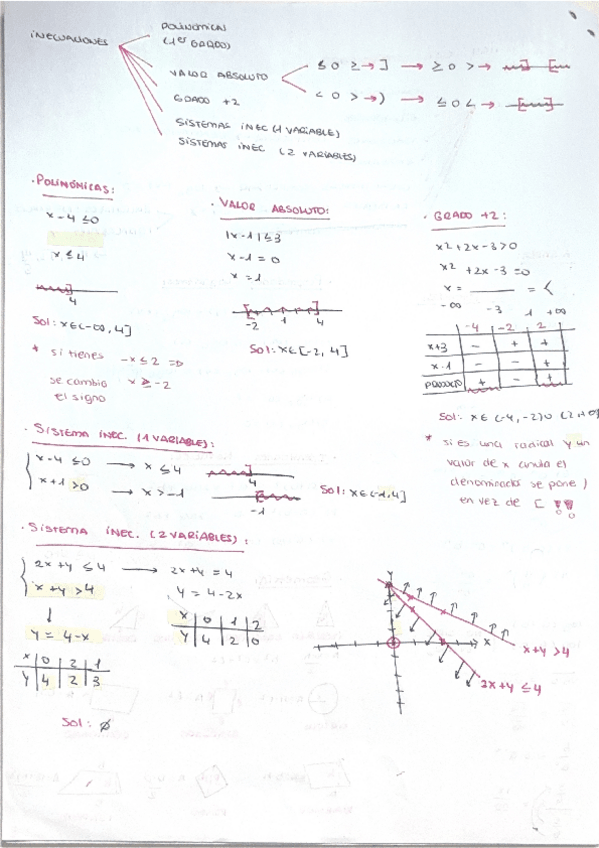 INECUACIONES
POLINÓMICAS
(1er GRADO)
VALOR ABSOLUTO
≤ o ≥ → ] → ≥ o > →
< o > → ) → ≤ o < →
GRADO +2
SISTEMAS INEC (1 VARIABLE)
SISTEMAS INEC (2 VARIABLES)
· POLINÓMICAS:
x - 4 ≤ 0
x ≤ 4
4
Sol: x ∈ (-∞, 4]
* si tienes -x ≤ 2 ⇒
se cambia x ≥ -2
el signo
· VALOR ABSOLUTO:
|x - 1| ≤ 3
x - 1 = 0
x = 1
-2 1 4
Sol: x ∈ [-2, 4]
· GRADO +2:
x² + 2x - 3 > 0
x² + 2x - 3 = 0
x = ______ = <
-∞ -3 1 +∞
-4 -2 2
x+3 - + +
x-1 - - +
PRODUCTO + - +
Sol: x ∈ (-4, -2) U (2,
* si es una radical y un
valor de x anula el
denominador se pone )
en vez de [ !!
· SISTEMA INEC. (1 VARIABLE):
x - 4 ≤ 0 → x ≤ 4
4
x + 1 > 0 → x > -1
-1
Sol: x ∈ (-1, 4]
· SISTEMA INEC. (2 VARIABLES):
2x + y ≤ 4 → 2x + y = 4
x + y > 4 y = 4 - 2x
↓
y = 4 - x
x 0 1 2
y 4 2 0
x 0 2 1
y 4 2 3
Sol: ∅
y
x
x + y > 4
2x + y ≤ 4